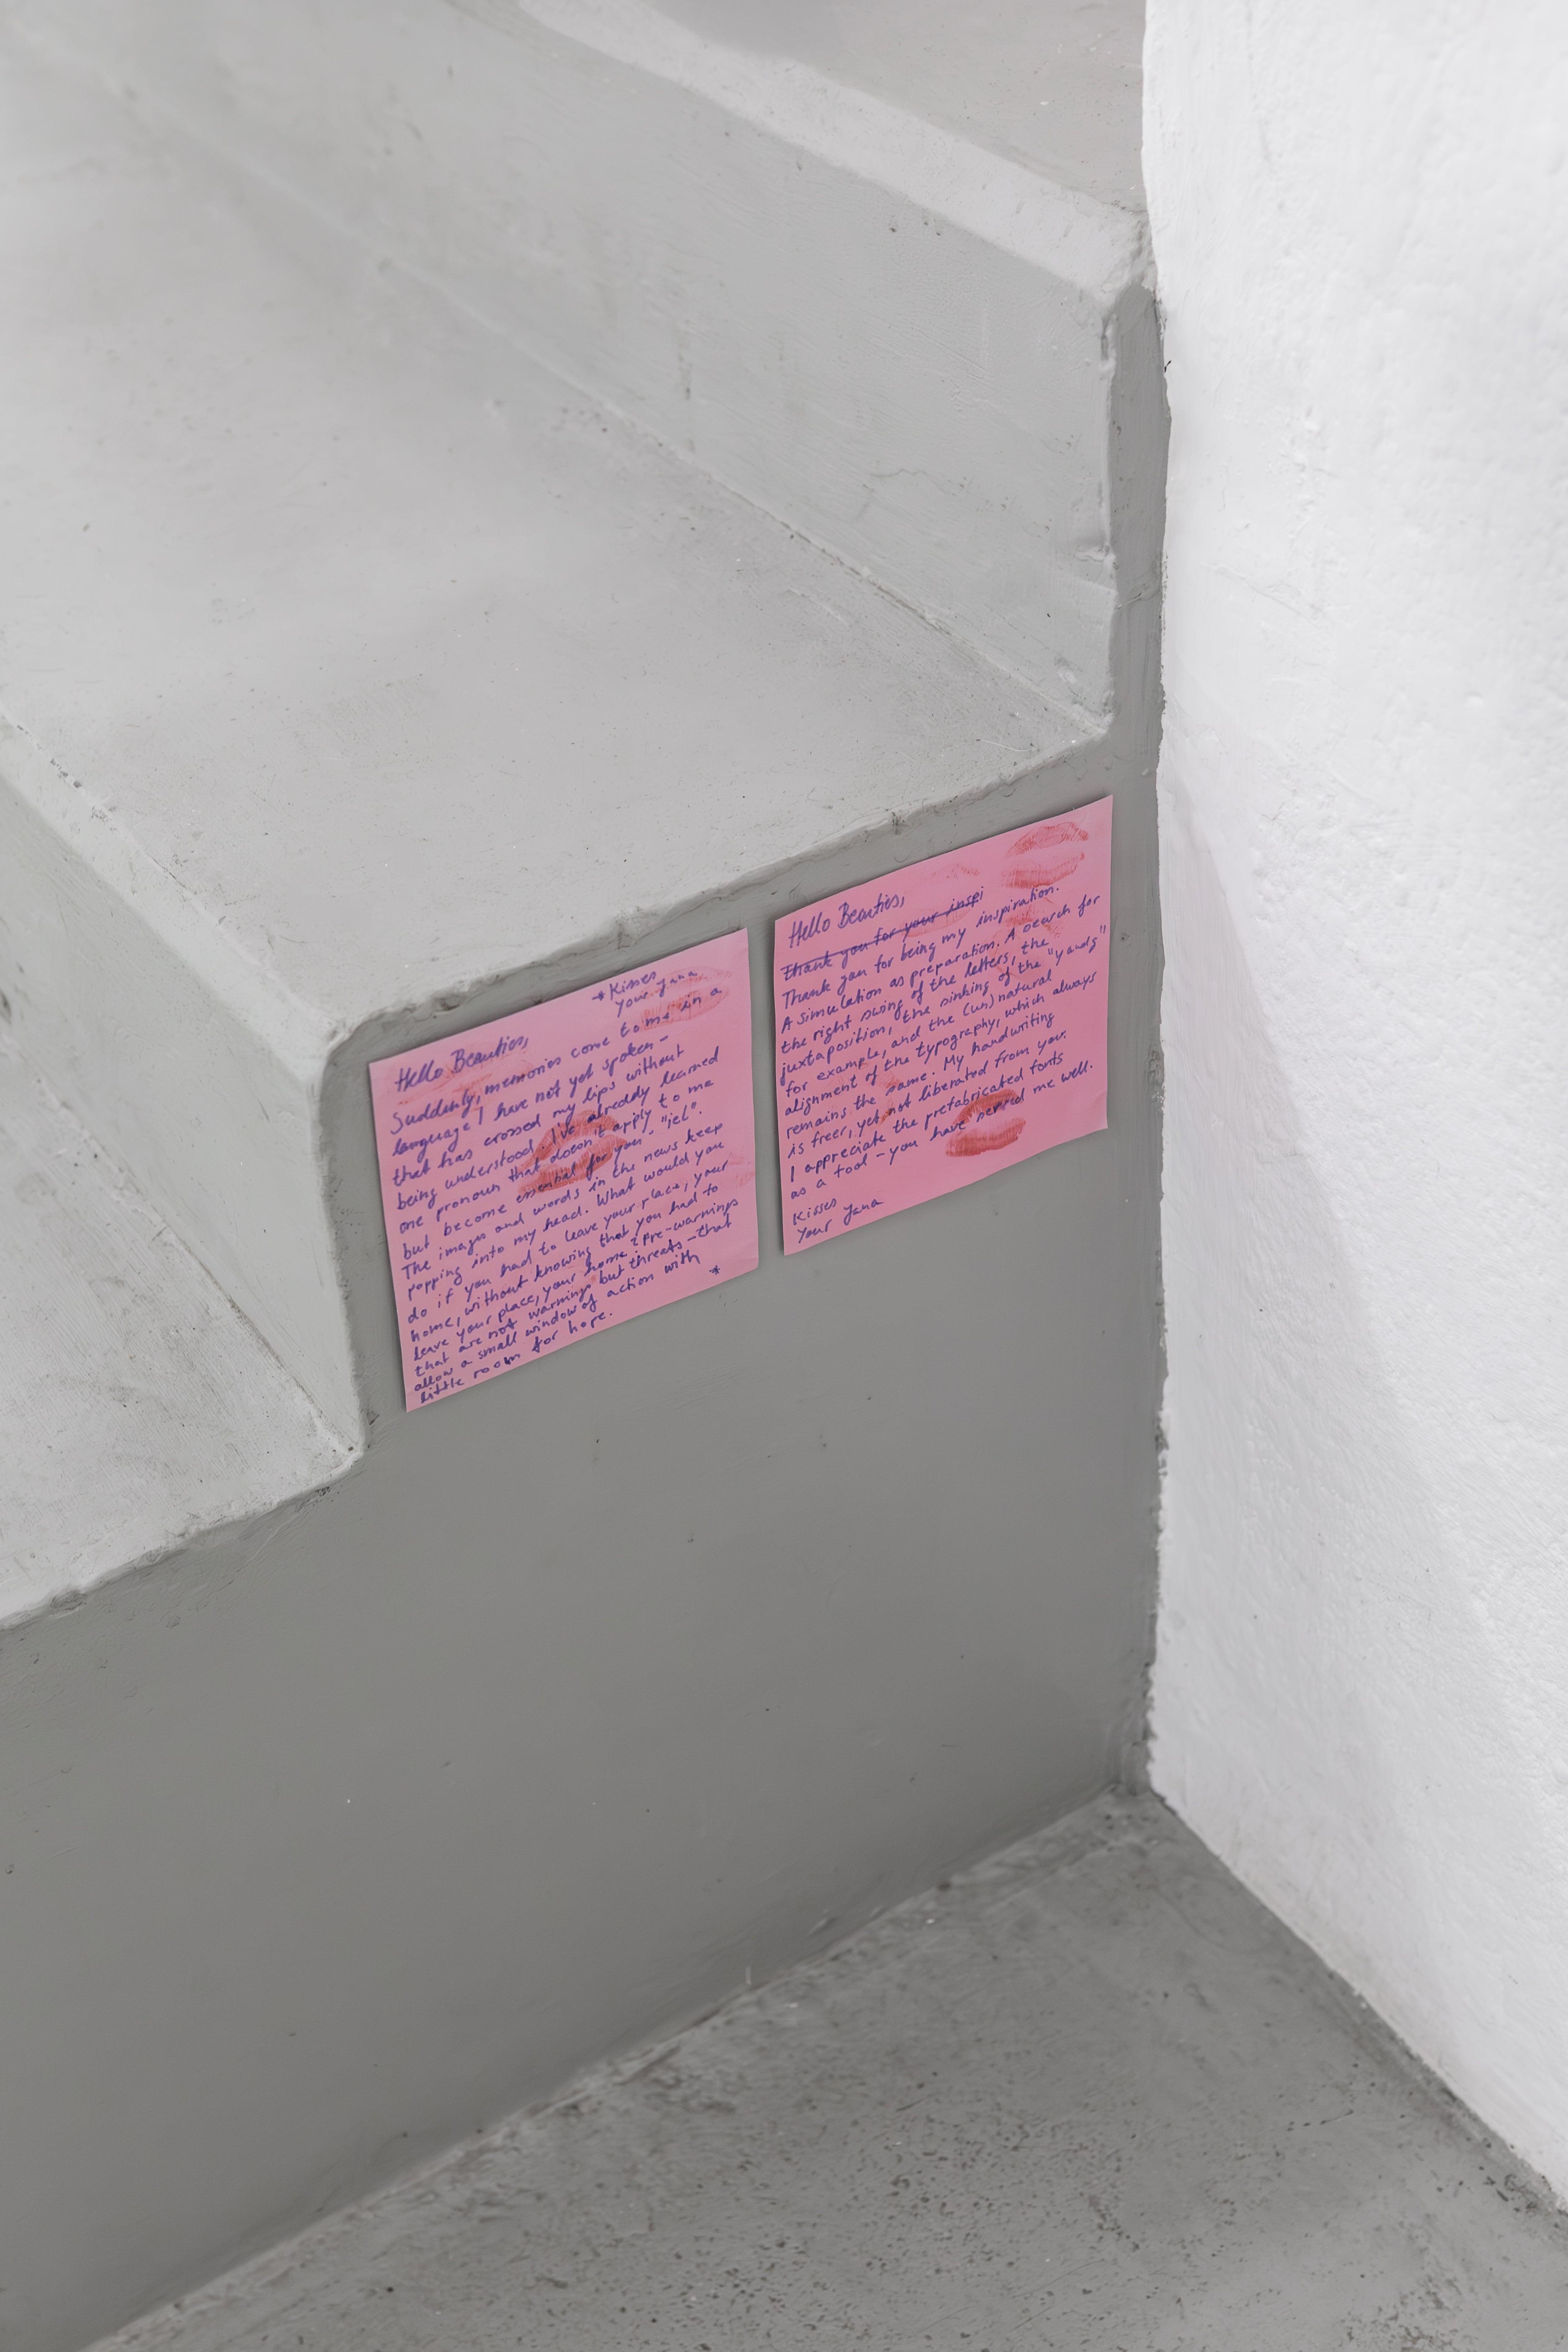 Hello Beauties,
Suddenly, memories come to me in a
language I have not yet spoken –
that has crossed my lips without
being understood. I've already learned
one pronoun that doesn't apply to me
but become essential for you – "iel".
The images and words in the news keep
popping into my head. What would you
do if you had to leave your place, your
home, without knowing that you had to
leave your place, your home? Pre-warnings
that are not warnings but threats – that
allow a small window of action with
little room for hope. *
* Kisses
Your Jana
Hello Beauties,
Thank you for your inspi
Thank you for being my inspiration.
A simulation as preparation. A search for
the right swing of the letters, the
juxtaposition, the sinking of the "y and g"
for example, and the (un)natural
alignment of the typography, which always
remains the same. My handwriting
is freer, yet not liberated from you.
I appreciate the prefabricated fonts
as a tool – you have served me well.
Kisses
Your Jana